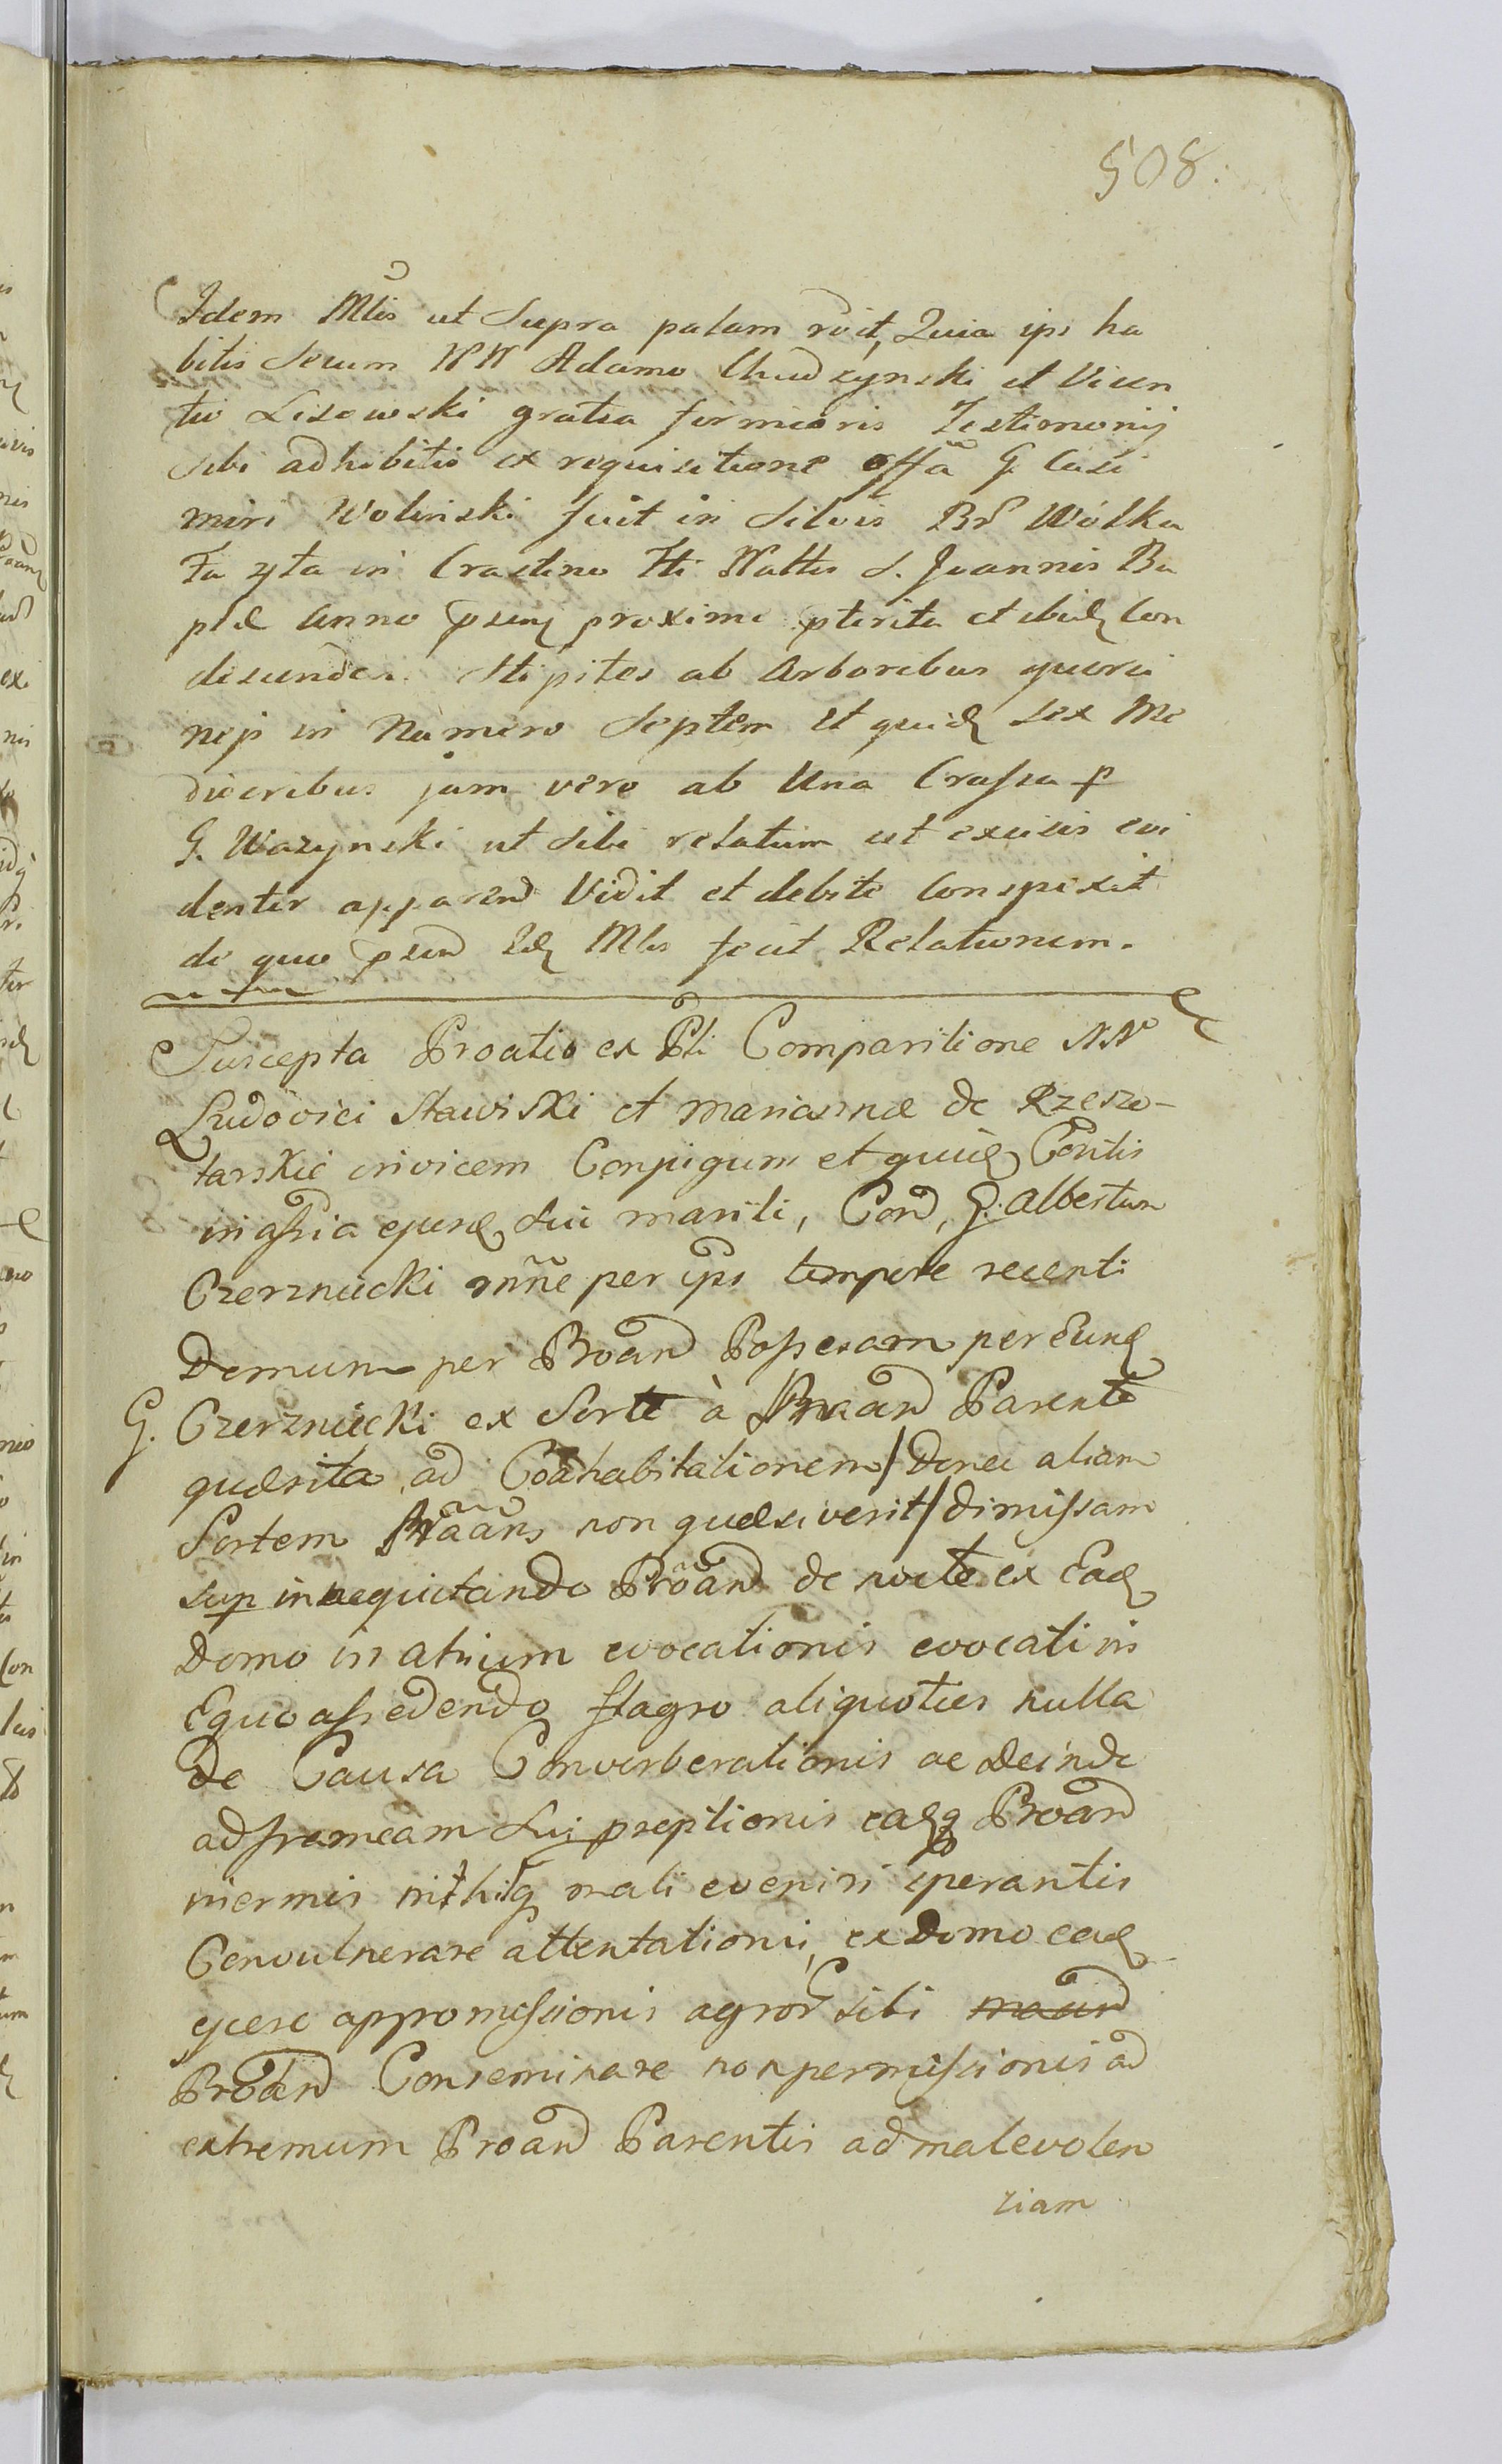 508.
Idem Mlis ut Supra palam rdit, Quia ips ha
bitis Secum NN Adamo Chudzynski et Vicen
tio Lisowski gratia firmioris Testimonij
Sibi adhibitis ex requisitione G. Casi
miri Wolinski fuit in Silvis Br Wolka
in Crastino fti S. Joannis Ba
ptae Anno proxime pterito et ibid Con
Stipites ab Arboribus querci
neis in Numero Septem et quid Sex Me
diocribus jam vero ab Una Crassa p
G. Wazynski ut Sibi relatum est excisis evi
denter apparend Vidit et debite Conspexit
de quo Id Mlis fecit Relationem.
Suscepta Proatio ex Pli Comparitione NN
Ludovici Stawiski et Mariannae de Rzeszo-
tarskie invicem Conjugum et quid Contis
in assia ejusd Sui mariti, Con, G. Albertum
Czerznicki mñe per ips tempore recenti
Domum per Proand Possesam per Eund
G. Czerznicki ex Sorte à Proand Parente
quaesita ad Coahabitationem / Donec aliam
Sortem non quaesiverit / dimissam
sup inaequietando Proand de nocte ex Ead
Domo in atrium evocationis evocati in
Equo assedendo flagro aliquoties nulla
de Causa Converberationis ac Deinde
ad frameam Sui preptionis Proand
inermis mali eveniri sperantis
Convulnerare attentationis, ex Domo ead
ejicere appromissionis agror Sibi
Proand Conseminare non permissionis ad
extremum Proand Parentis ad malevolen
ziam